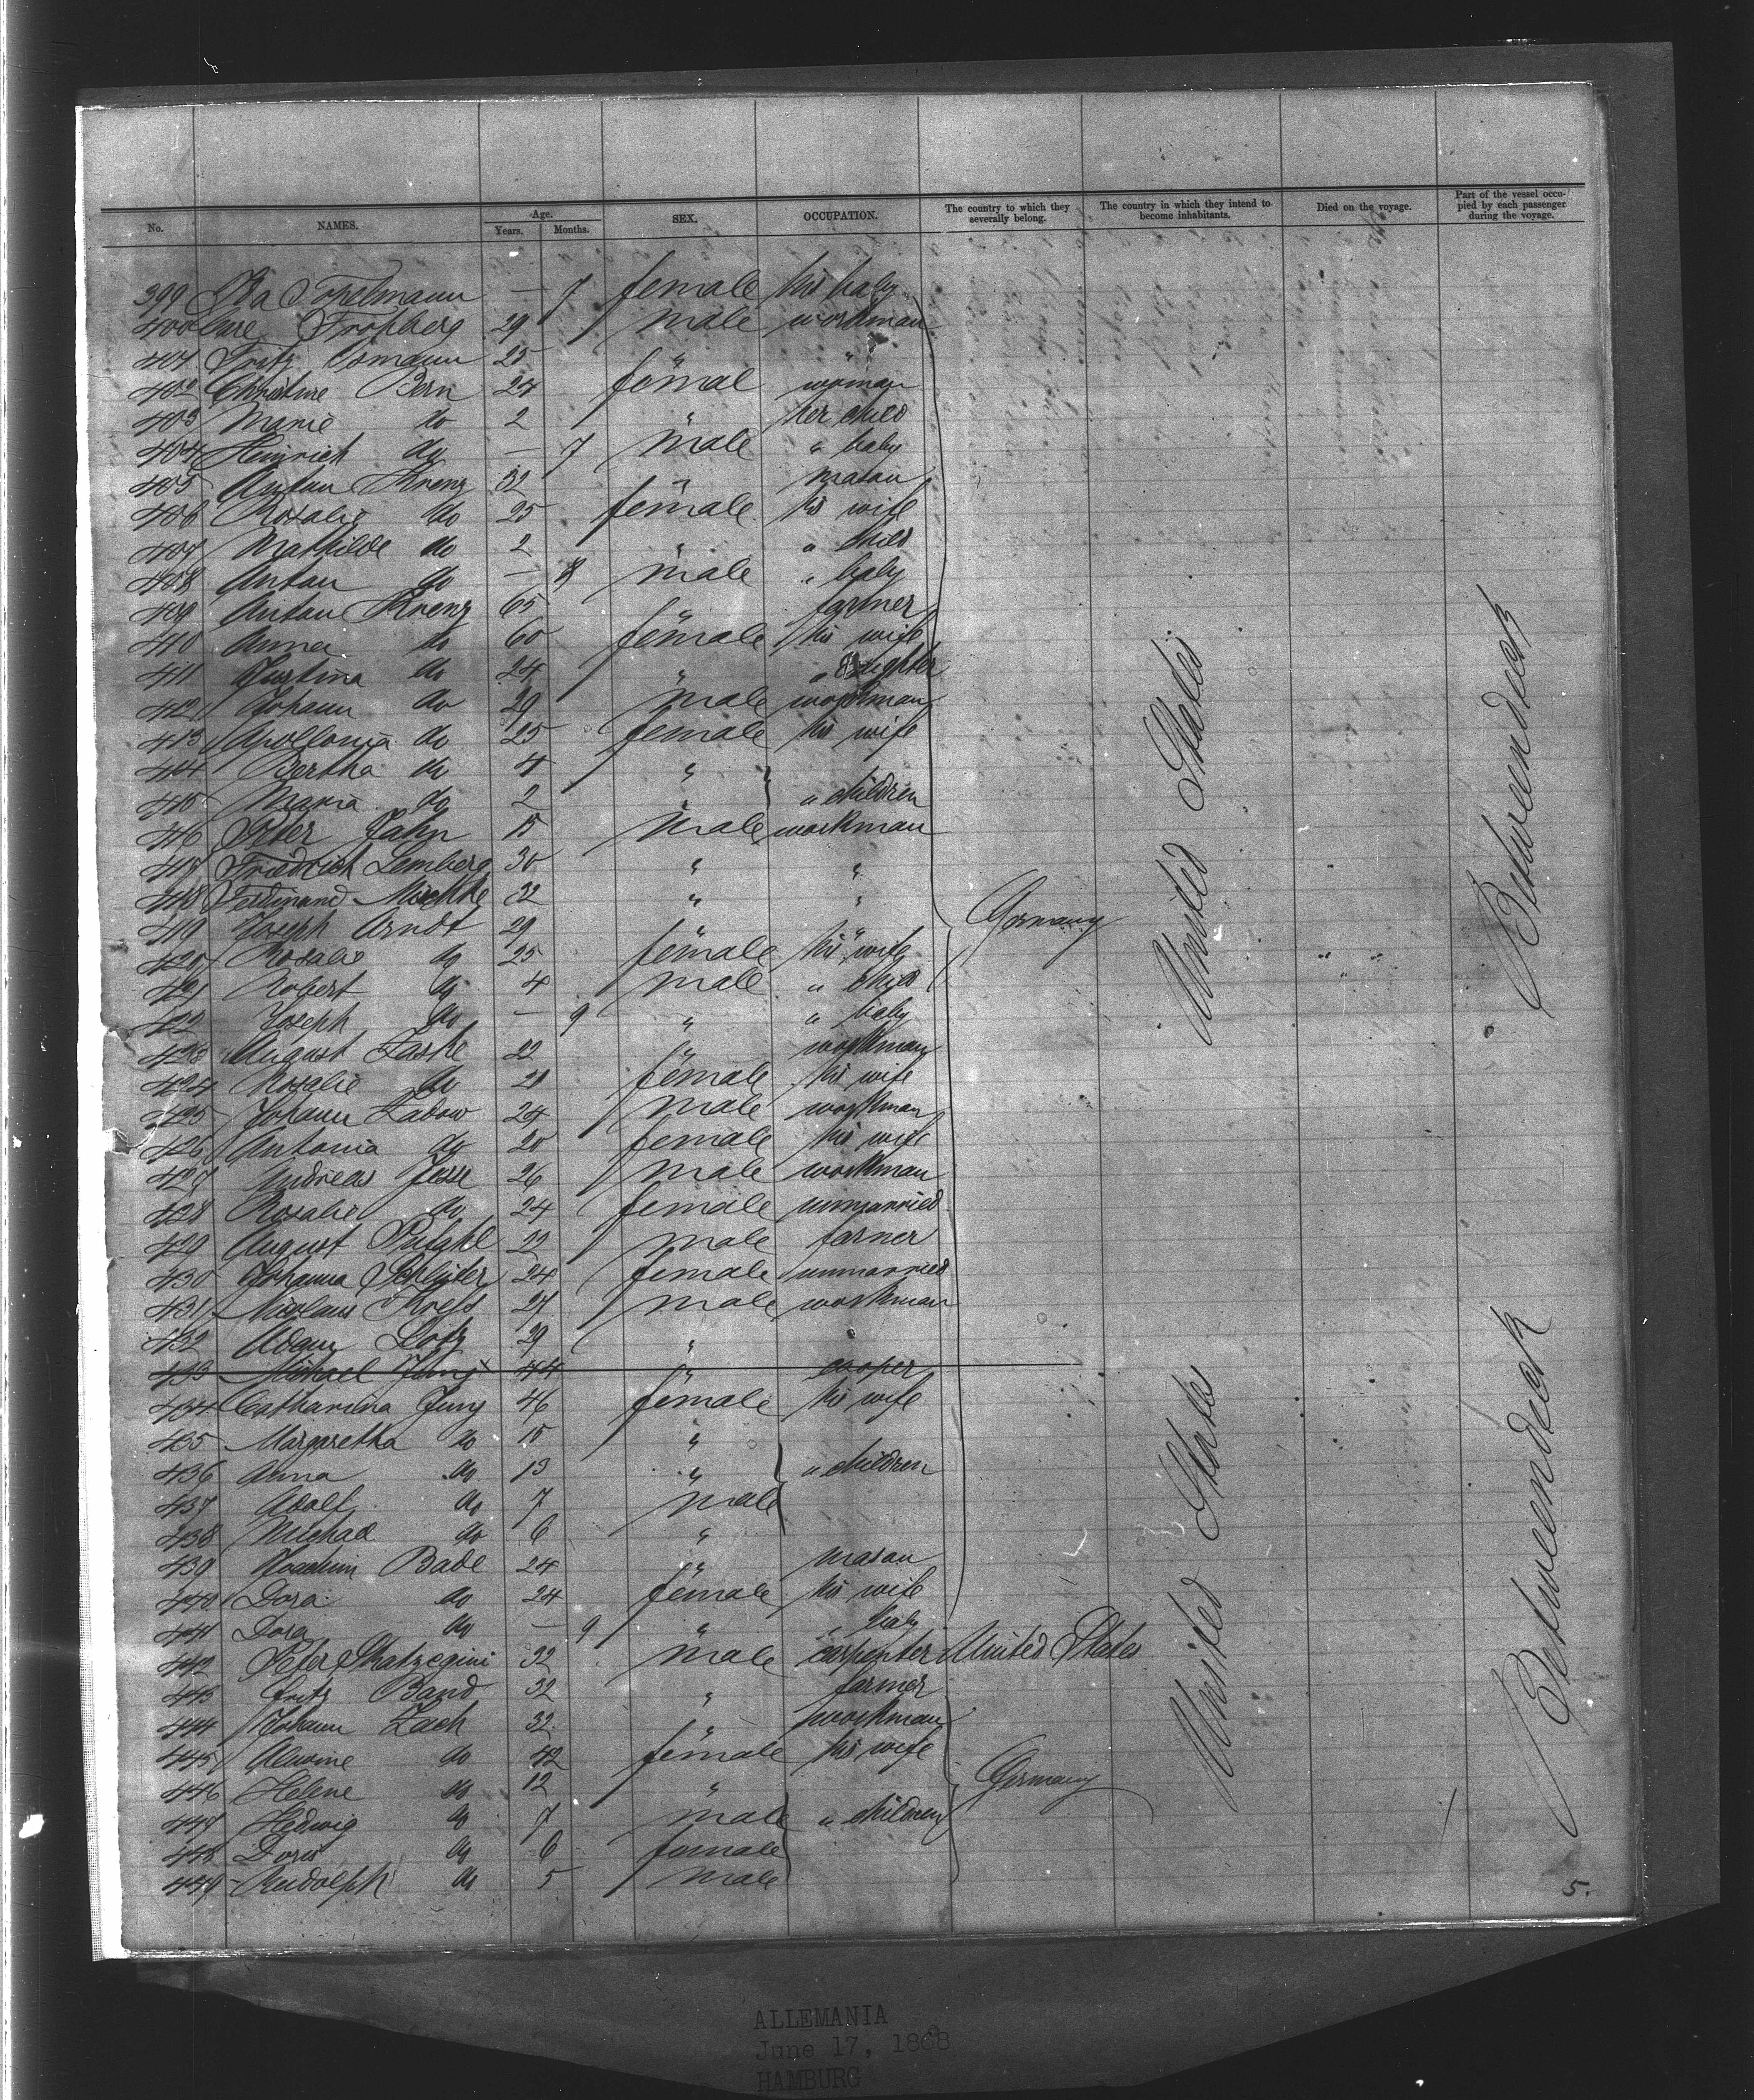 No. NAMES. Age. Years. Months. SEX. OCCUPATION. The country to which they severally belong. The country in which they intend to become inhabitants. Died on the voyage. Part of the vessel occupied by each passenger during the voyage.
399 Ida Topelmann — 7 female his baby
400 Frohberg 29 male workman
401 Fritz Osmann 25 " "
402 Christine Bern 24 femal woman
403 Marie do 2 " her child
404 Heinrich do — 7 male " baby
405 Anton Krenz 32 " mason
406 Rosalie do 25 female his wife
407 Mathilde do 2 " " child
408 Anton do — 8 male " baby
409 Anton Krenz 65 " farmer
410 Anna do 60 female his wife
411 Justina do 24 " " daughter
412 Johann do 29 male workman
413 Apollonia do 25 female his wife
414 Bertha do 4 "
415 Maria do 2 " " children
416 Peter Jahn 15 male workman
417 Friedrich Lemberg 30 " "
418 Ferdinand Mischke 32 " "
419 Joseph Arndt 29 " "
420 Rosalie do 25 female his wife
421 Robert do 4 male " child
422 Joseph do — 9 " " baby
423 August Laske 22 " workman
424 Rosalie do 21 female his wife
425 Johann Ladow 24 male workman
426 Antonia do 20 female his wife
427 Andreas Jesse 26 male workman
428 Rosalie do 24 female unmarried
429 August Pufahl 22 male farner
430 Johanna 24 female unmarried
431 Nicolaus Kress 27 male workman
432 Adam Lotz 29 " "
433 Michael Jung 44 " cooper
434 Catharina Jung 46 female his wife
435 Margaretha do 15 "
436 Anna do 13 " " children
437 Adolf do 7 male
438 Michael do 6 "
439 Joachim Bade 24 " mason
440 Dora do 24 female his wife
441 Dora do — 9 " " baby
442 Peter 32 male carpenter United States
443 Fritz Band 32 " farmer
444 Johann Zach 32 " workman
445 Alwine do 42 female his wife
446 Helene do 12 "
447 Hedwig do 7 male " children
448 Doris do 6 female
449 Rudolph do 5 male
Germany
Germany
United States
United States
Betweendeck
Betweendeck
5.
ALLEMANIA
June 17, 1888
HAMBURG